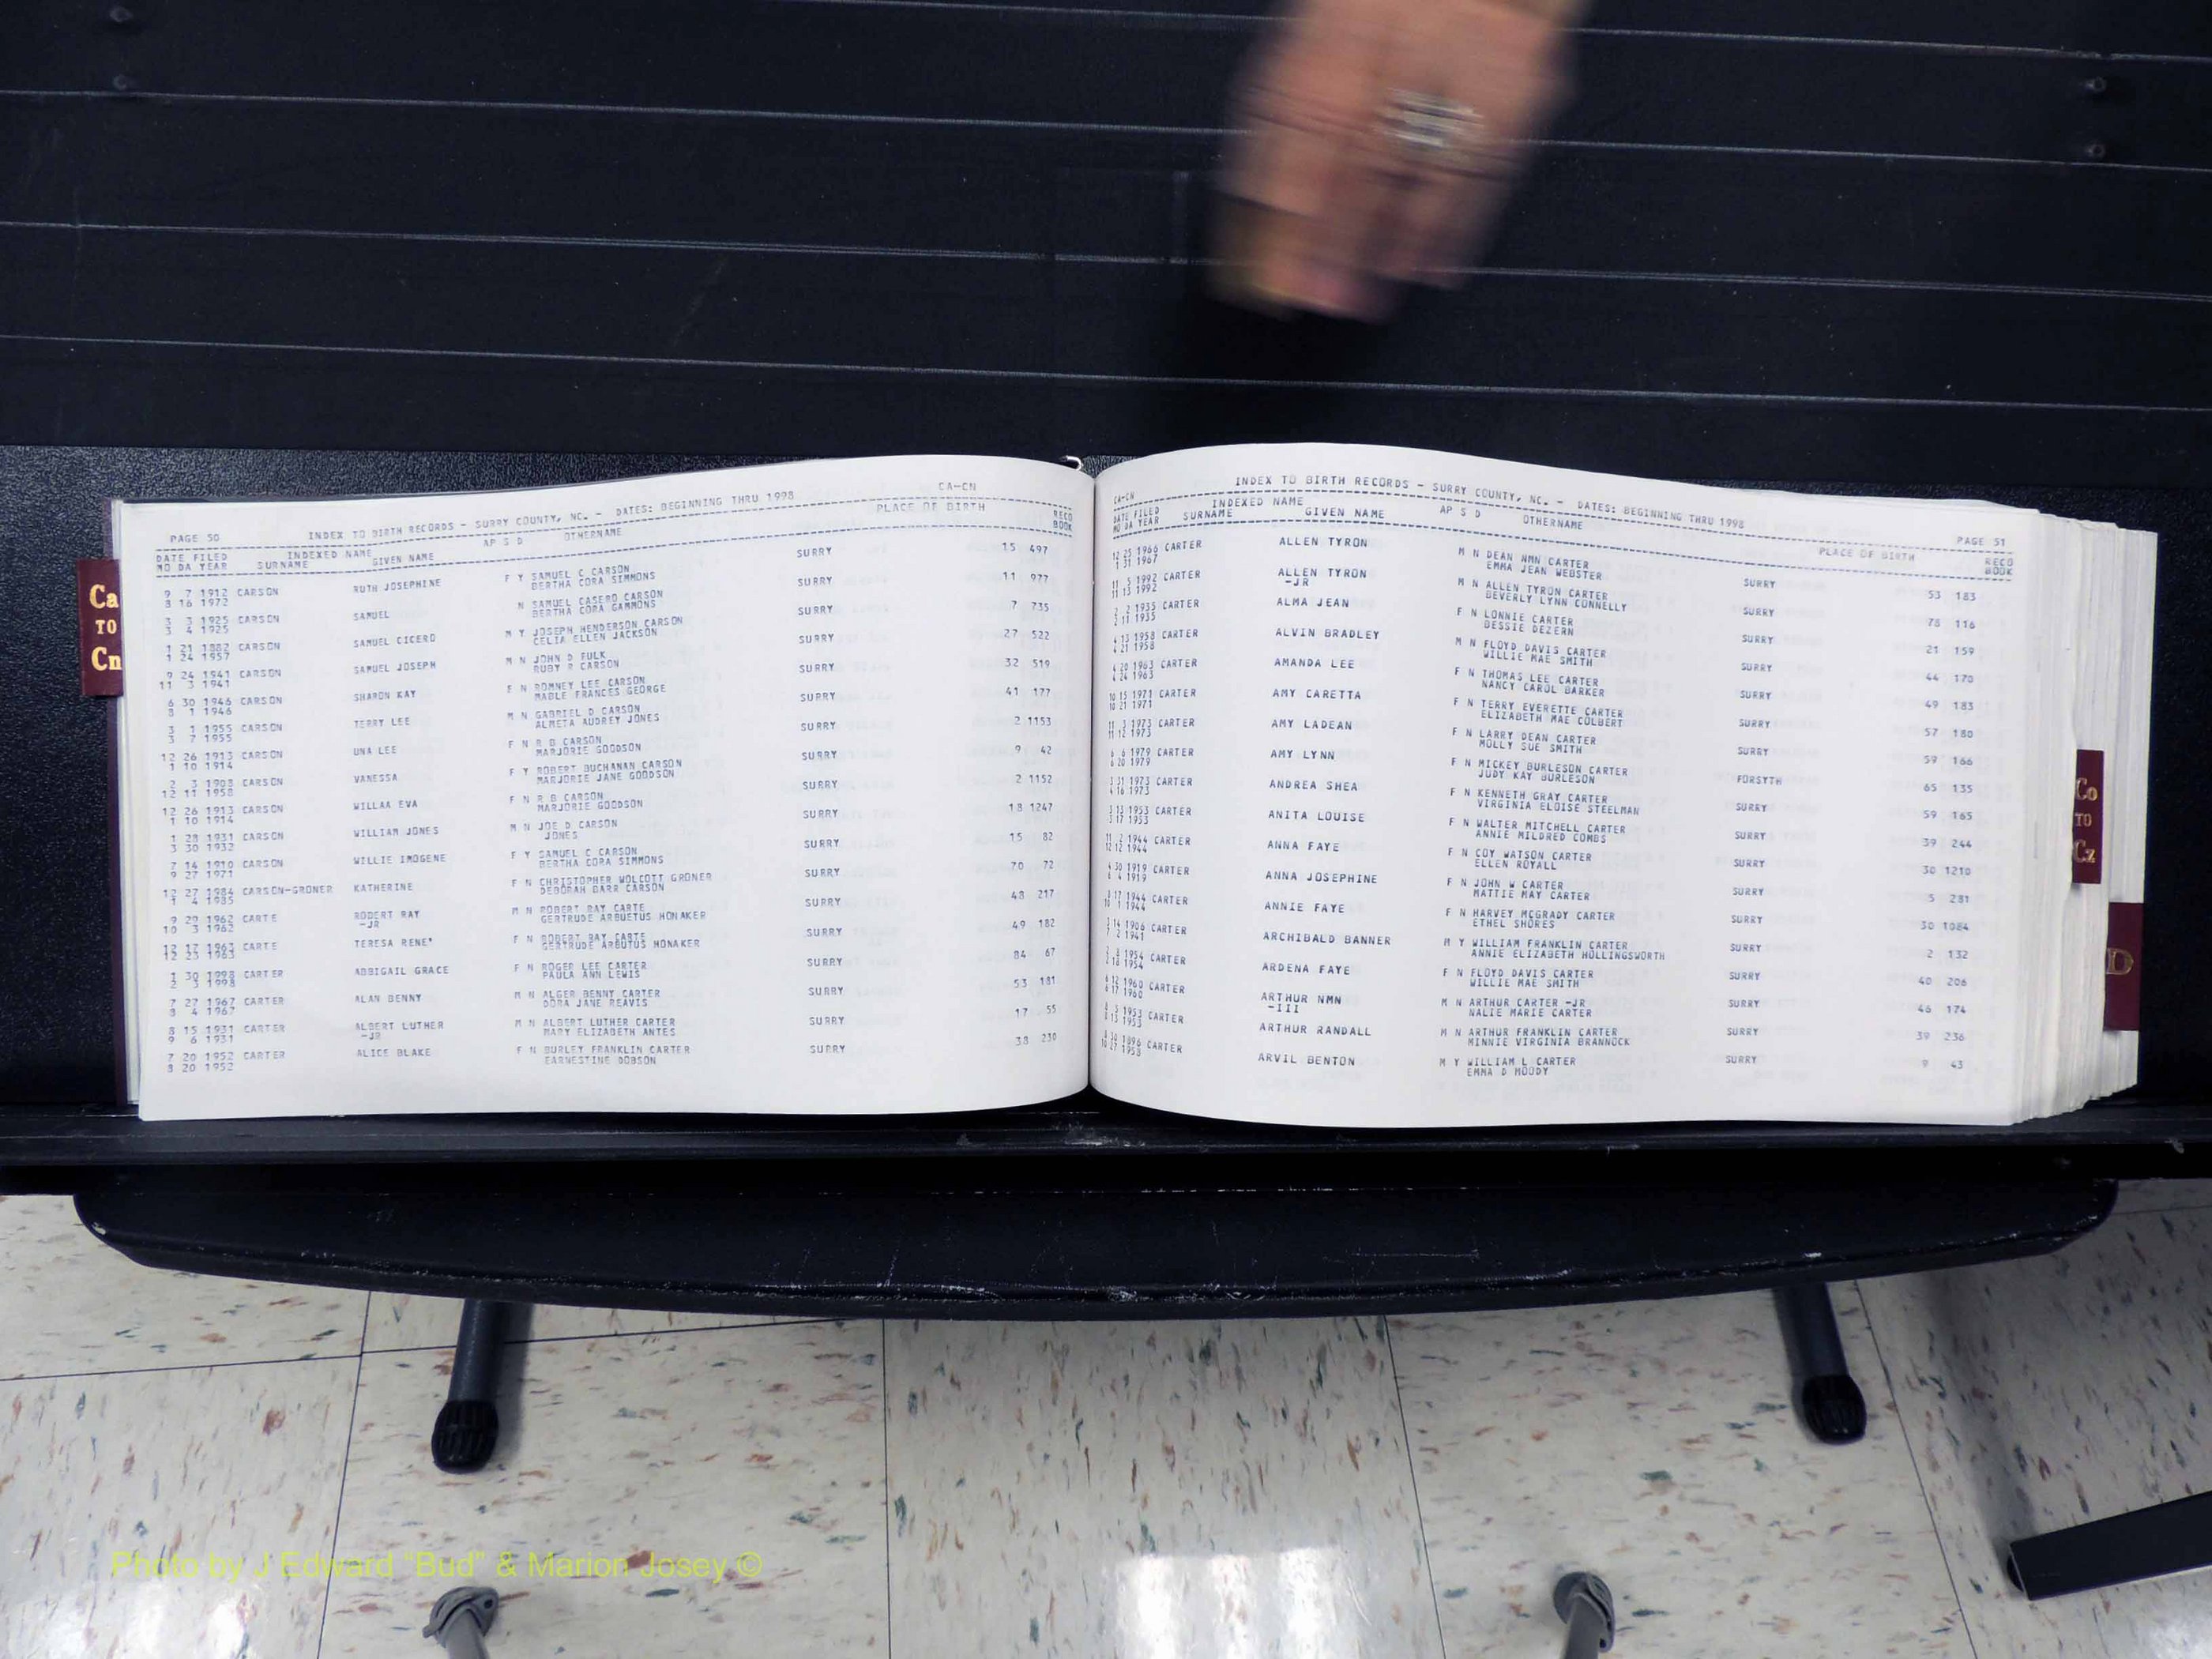 Ca
TO
Cn
PAGE 50 INDEX TO BIRTH RECORDS - SURRY COUNTY, NC. - DATES: BEGINNING THRU 1998 CA-CN
DATE FILED INDEXED NAME AP S D OTHERNAME PLACE OF BIRTH RECO
MO DA YEAR SURNAME GIVEN NAME BOOK
9 7 1912 CARSON RUTH JOSEPHINE F Y SAMUEL C CARSON SURRY 15 497
8 16 1972 BERTHA CORA SIMMONS
3 3 1925 CARSON SAMUEL N SAMUEL CASERO CARSON SURRY 11 977
3 4 1925 BERTHA CORA GAMMONS
1 21 1882 CARSON SAMUEL CICERO M Y JOSEPH HENDERSON CARSON SURRY 7 735
1 24 1957 CELIA ELLEN JACKSON
9 24 1941 CARSON SAMUEL JOSEPH M N JOHN D FULK SURRY 27 522
11 3 1941 RUBY R CARSON
6 30 1946 CARSON SHARON KAY F N ROMNEY LEE CARSON SURRY 32 519
8 1 1946 MABLE FRANCES GEORGE
3 1 1955 CARSON TERRY LEE M N GABRIEL D CARSON SURRY 41 177
3 7 1955 ALMETA AUDREY JONES
12 26 1913 CARSON UNA LEE F N R B CARSON SURRY 2 1153
1 10 1914 MARJORIE GOODSON
2 3 1908 CARSON VANESSA F Y ROBERT BUCHANAN CARSON SURRY 9 42
12 11 1958 MARJORIE JANE GOODSON
12 26 1913 CARSON WILLAA EVA F N R B CARSON SURRY 2 1152
1 10 1914 MARJORIE GOODSON
1 28 1931 CARSON WILLIAM JONES M N JOE D CARSON SURRY 18 1247
3 30 1932 JONES
7 14 1910 CARSON WILLIE IMOGENE F Y SAMUEL C CARSON SURRY 15 82
9 27 1971 BERTHA CORA SIMMONS
12 27 1984 CARSON-GRONER KATHERINE F N CHRISTOPHER WOLCOTT GRONER SURRY 70 72
1 4 1985 DEBORAH BARR CARSON
9 29 1962 CARTE ROBERT RAY M N ROBERT RAY CARTE SURRY 48 217
10 3 1962 -JR GERTRUDE ARBUETUS HONAKER
12 17 1963 CARTE TERESA RENE' F N ROBERT RAY CARTE SURRY 49 182
12 23 1963 GERTRUDE ARBUTUS HONAKER
1 30 1998 CARTER ABBIGAIL GRACE F N ROGER LEE CARTER SURRY 84 67
2 3 1998 PAULA ANN LEWIS
7 27 1967 CARTER ALAN BENNY M N ALGER BENNY CARTER SURRY 53 181
8 4 1967 DORA JANE REAVIS
8 15 1931 CARTER ALBERT LUTHER M N ALBERT LUTHER CARTER SURRY 17 55
9 6 1931 -JR MARY ELIZABETH ANTES
7 20 1952 CARTER ALICE BLAKE F N BURLEY FRANKLIN CARTER SURRY 38 230
8 20 1952 EARNESTINE DOBSON
CA-CN INDEX TO BIRTH RECORDS - SURRY COUNTY, NC. - DATES: BEGINNING THRU 1998 PAGE 51
DATE FILED INDEXED NAME AP S D OTHERNAME PLACE OF BIRTH RECO
MO DA YEAR SURNAME GIVEN NAME BOOK
12 25 1966 CARTER ALLEN TYRON M N DEAN NMN CARTER SURRY 53 183
1 31 1967 EMMA JEAN WEBSTER
11 5 1992 CARTER ALLEN TYRON M N ALLEN TYRON CARTER SURRY 78 116
11 13 1992 -JR BEVERLY LYNN CONNELLY
2 2 1935 CARTER ALMA JEAN F N LONNIE CARTER SURRY 21 159
2 11 1935 BESSIE DEZERN
4 13 1958 CARTER ALVIN BRADLEY M N FLOYD DAVIS CARTER SURRY 44 170
4 21 1958 WILLIE MAE SMITH
4 20 1963 CARTER AMANDA LEE F N THOMAS LEE CARTER SURRY 49 183
4 24 1963 NANCY CAROL BARKER
10 15 1971 CARTER AMY CARETTA F N TERRY EVERETTE CARTER SURRY 57 180
10 21 1971 ELIZABETH MAE COLBERT
11 3 1973 CARTER AMY LADEAN F N LARRY DEAN CARTER SURRY 59 166
11 12 1973 MOLLY SUE SMITH
6 6 1979 CARTER AMY LYNN F N MICKEY BURLESON CARTER FORSYTH 65 135
6 20 1979 JUDY KAY BURLESON
3 31 1973 CARTER ANDREA SHEA F N KENNETH GRAY CARTER SURRY 59 165
4 16 1973 VIRGINIA ELOISE STEELMAN
3 13 1953 CARTER ANITA LOUISE F N WALTER MITCHELL CARTER SURRY 39 244
3 17 1953 ANNIE MILDRED COMBS
11 2 1944 CARTER ANNA FAYE F N COY WATSON CARTER SURRY 30 1210
12 12 1944 ELLEN ROYALL
4 30 1919 CARTER ANNA JOSEPHINE F N JOHN W CARTER SURRY 5 281
6 4 1919 MATTIE MAY CARTER
17 1944 CARTER ANNIE FAYE F N HARVEY MCGRADY CARTER SURRY 30 1084
1 1944 ETHEL SHORES
14 1906 CARTER ARCHIBALD BANNER M Y WILLIAM FRANKLIN CARTER SURRY 2 132
7 2 1941 ANNIE ELIZABETH HOLLINGSWORTH
2 8 1954 CARTER ARDENA FAYE F N FLOYD DAVIS CARTER SURRY 40 206
2 16 1954 WILLIE MAE SMITH
12 1960 CARTER ARTHUR NMN M N ARTHUR CARTER -JR SURRY 46 174
17 1960 -III NALIE MARIE CARTER
5 1953 CARTER ARTHUR RANDALL M N ARTHUR FRANKLIN CARTER SURRY 39 236
13 1953 MINNIE VIRGINIA BRANNOCK
30 1896 CARTER ARVIL BENTON M Y WILLIAM L CARTER SURRY 9 43
10 27 1958 EMMA D MOODY
Co
TO
Cz
D
Photo by J Edward "Bud" & Marion Josey ©